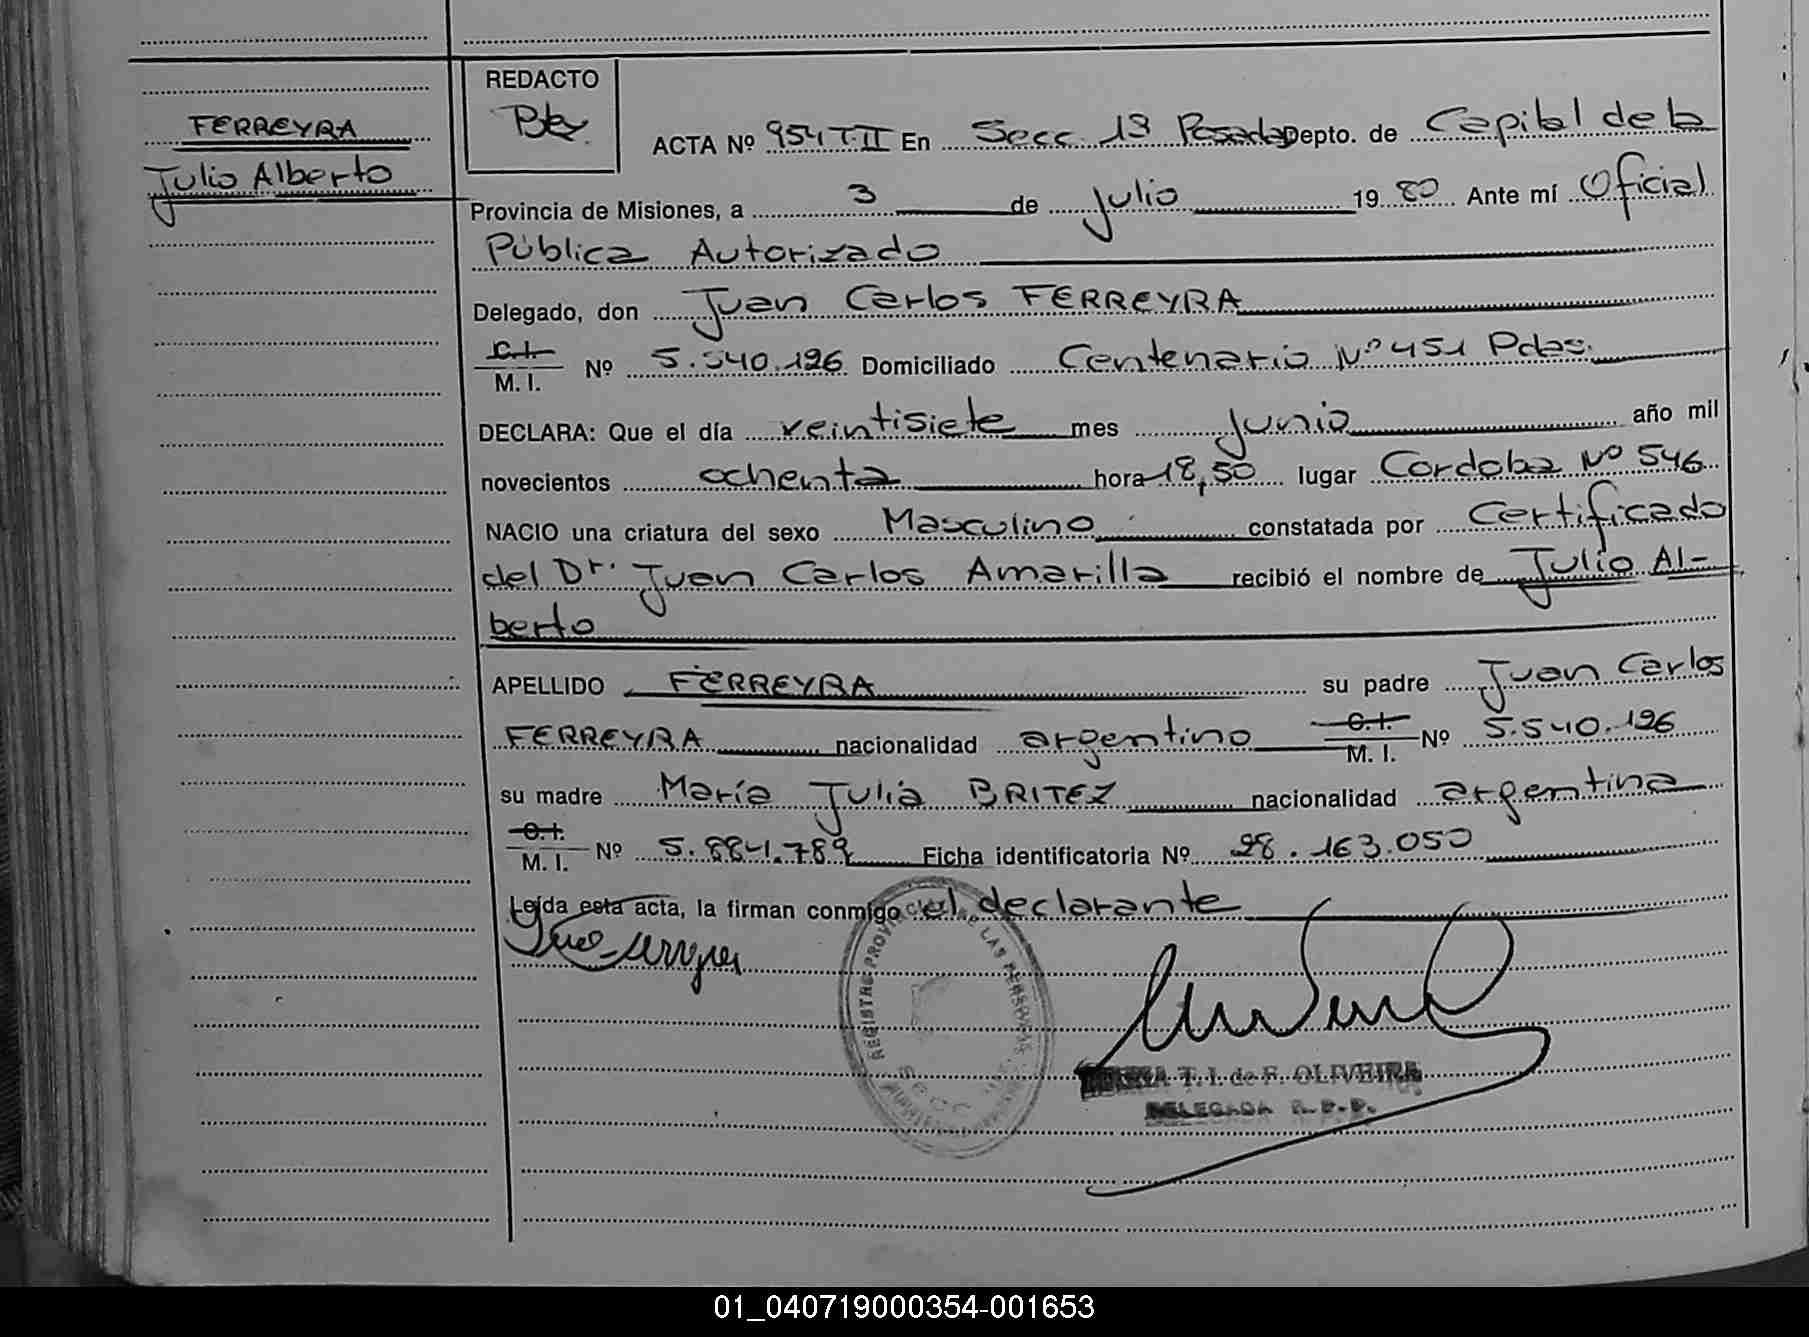 FERREYRA
Julio Alberto
REDACTO
ACTA Nº 954 T-II En Secc. 1ª Posadas Depto. de Capital de la
Provincia de Misiones, a 3 de Julio 1980 Ante mí Oficial
Pública Autorizado
Delegado, don Juan Carlos FERREYRA
C.I.
M. I. Nº 5.540.126 Domiciliado Centenario Nº 451 Pdas.
DECLARA: Que el día veintisiete mes Junio año mil
novecientos ochenta hora 18,50 lugar Cordoba Nº 546
NACIO una criatura del sexo Masculino constatada por Certificado
del Dr. Juan Carlos Amarilla recibió el nombre de Julio Al-
berto
APELLIDO FERREYRA su padre Juan Carlos
FERREYRA nacionalidad argentino C.I. M. I. Nº 5.540.126
su madre María Julia BRITEZ nacionalidad argentina
C.I.
M. I. Nº 5.884.789 Ficha identificatoria Nº 28.163.050
Leída esta acta, la firman conmigo el declarante
REGISTRO PROVINCIAL DE LAS PERSONAS
SECC.
T. I. de F. OLIVEIRA
DELEGADA R.P.P.
01_040719000354-001653